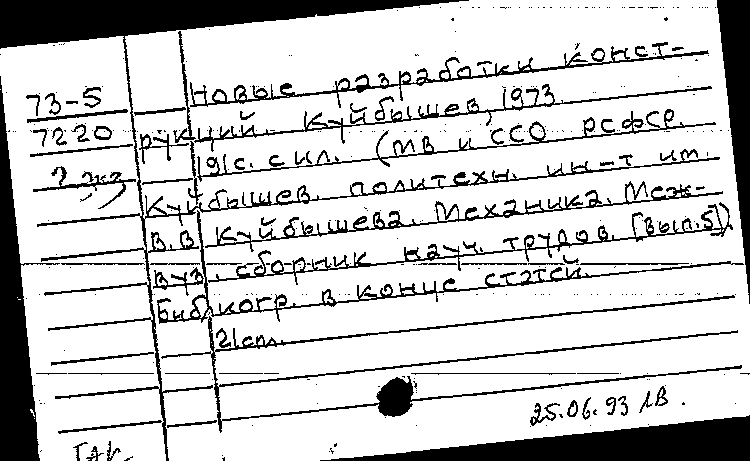 73-5
7220
2 экз
Новые разработки конст-
рукций. Куйбышев, 1973.
191с. с ил. (МВ и ССО РСФСР.
Куйбышев. политехн. ин-т им.
В.В. Куйбышева. Механика. Меж-
вуз. сборник науч. трудов. [Вып.5]).
Библиогр. в конце статей.
21спл.
25.06.93